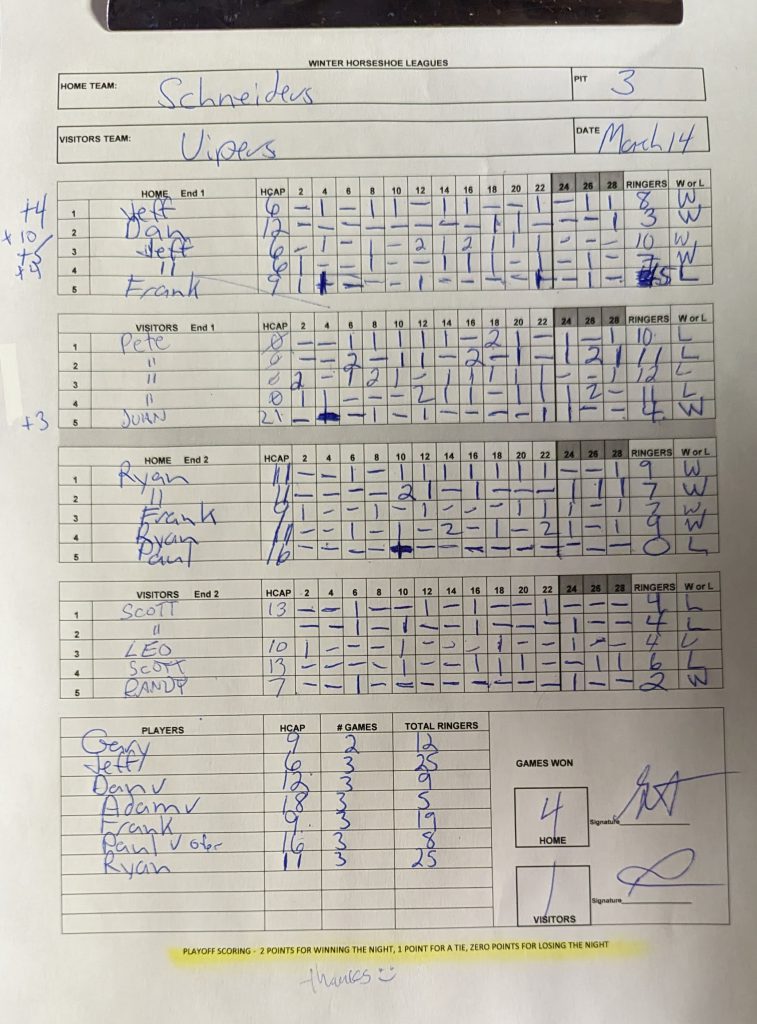 WINTER HORSESHOE LEAGUES
HOME TEAM: Schneiders PIT 3
VISITORS TEAM: Vipers DATE March 14
HOME End 1 HCAP 2 4 6 8 10 12 14 16 18 20 22 24 26 28 RINGERS W or L
+4 1 Jeff 6 - 1 - 1 1 - 1 1 - - 1 - 1 1 8 W
+10 2 Dan 12 3 W
+5 3 Jeff 6 - 1 - 1 - 2 1 2 1 1 1 - - - 10 W
+4 4 " 6 7 W
5 Frank 9 5 L
VISITORS End 1 HCAP 2 4 6 8 10 12 14 16 18 20 22 24 26 28 RINGERS W or L
1 Pete 0 - - 1 1 1 1 1 - 2 1 - 1 - 1 10 L
2 " 0 - - 2 - 1 1 - 2 - 1 - 1 2 1 11 L
3 " 0 2 - 1 2 1 - 1 1 1 1 1 - - 1 12 L
4 " 0 11 L
+3 5 JUAN 21 4 W
HOME End 2 HCAP 2 4 6 8 10 12 14 16 18 20 22 24 26 28 RINGERS W or L
1 Ryan 11 9 W
2 " 11 - - - - 2 1 - 1 - - - 1 1 1 7 W
3 Frank 9 7 W
4 Ryan 11 - - 1 - 1 - 2 - - 1 2 1 - 1 9 W
5 Paul 16 0 L
VISITORS End 2 HCAP 2 4 6 8 10 12 14 16 18 20 22 24 26 28 RINGERS W or L
1 SCOTT 13 - - 1 - - 1 - 1 - - 1 - - - 4 L
2 " 4 L
3 LEO 10 1 - - - 1 - - - 1 - - 1 - - 4 L
4 SCOTT 13 - - - - 1 - - 1 1 1 - - 1 1 6 L
5 RANDY 7 - - 1 - - - - - - - - 1 - - 2 W
PLAYERS HCAP # GAMES TOTAL RINGERS
Gery 9 2 12
Jeff 6 3 25
Dan 12 3 9
Adam 18 3 5
Frank 9 3 19
Paul 16 3 8
Ryan 11 3 25
GAMES WON
4
HOME
Signature
1
VISITORS
Signature
PLAYOFF SCORING - 2 POINTS FOR WINNING THE NIGHT, 1 POINT FOR A TIE, ZERO POINTS FOR LOSING THE NIGHT
thanks